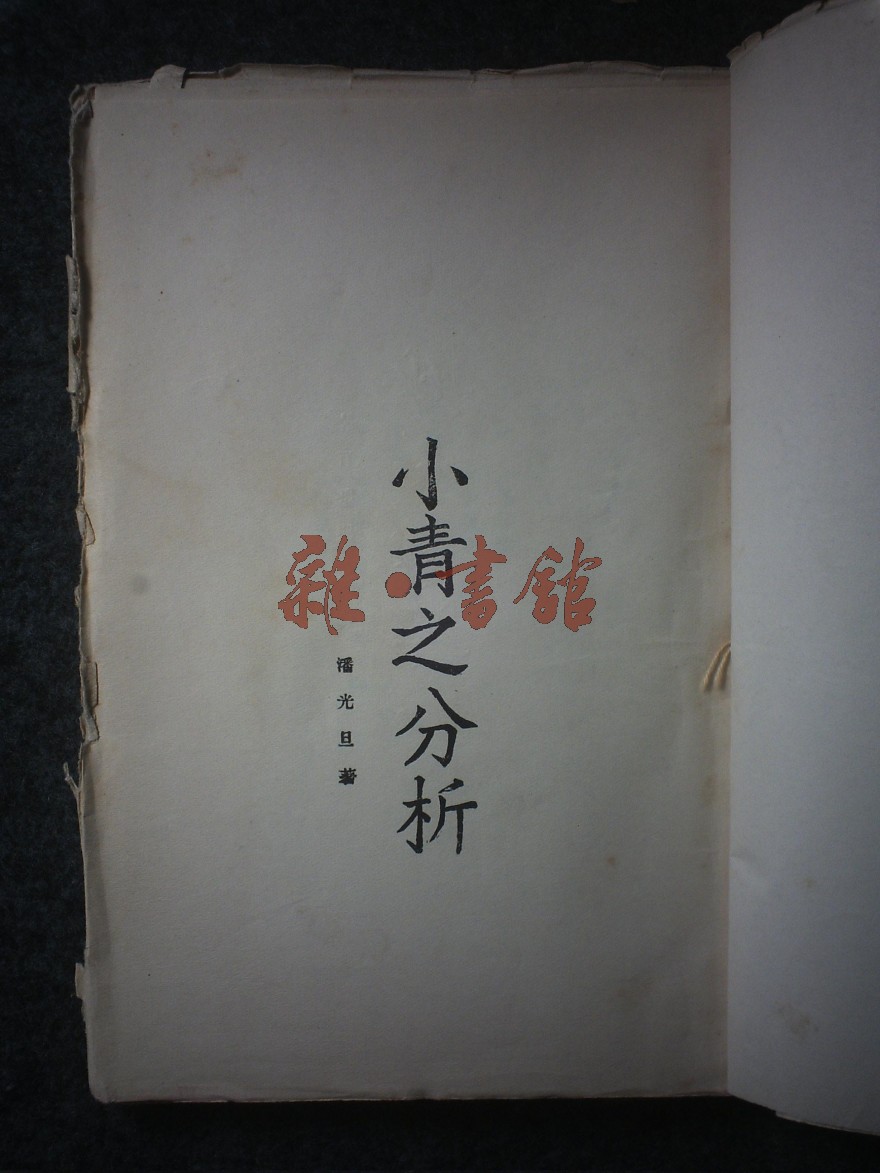 小青之分析
潘光旦著
雜·書館